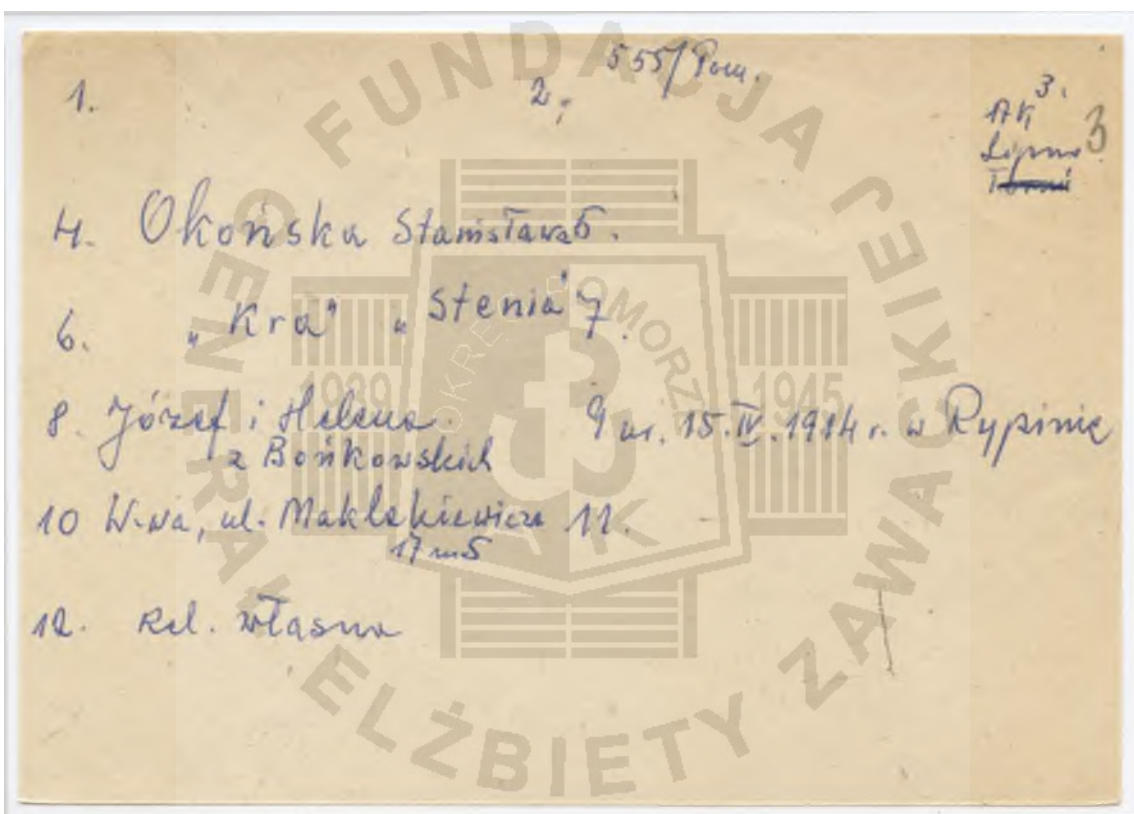 555/Pom.
1. 2. 3.
AK 3
Lipno
Toruń
4. Okońska Stanisława 5.
6. „Kra" „Stenia" 7.
8. Józef i Helena. 9 ur. 15.IV.1914 r. w Rypinie
z Bońkowskich
10 W-wa, ul. Maklakiewicza 11.
17 m 5
12. Rel. własna
FUNDACJA GENERAŁ ELŻBIETY ZAWACKIEJ
OKRĘG POMORZE
1939 1945
AK